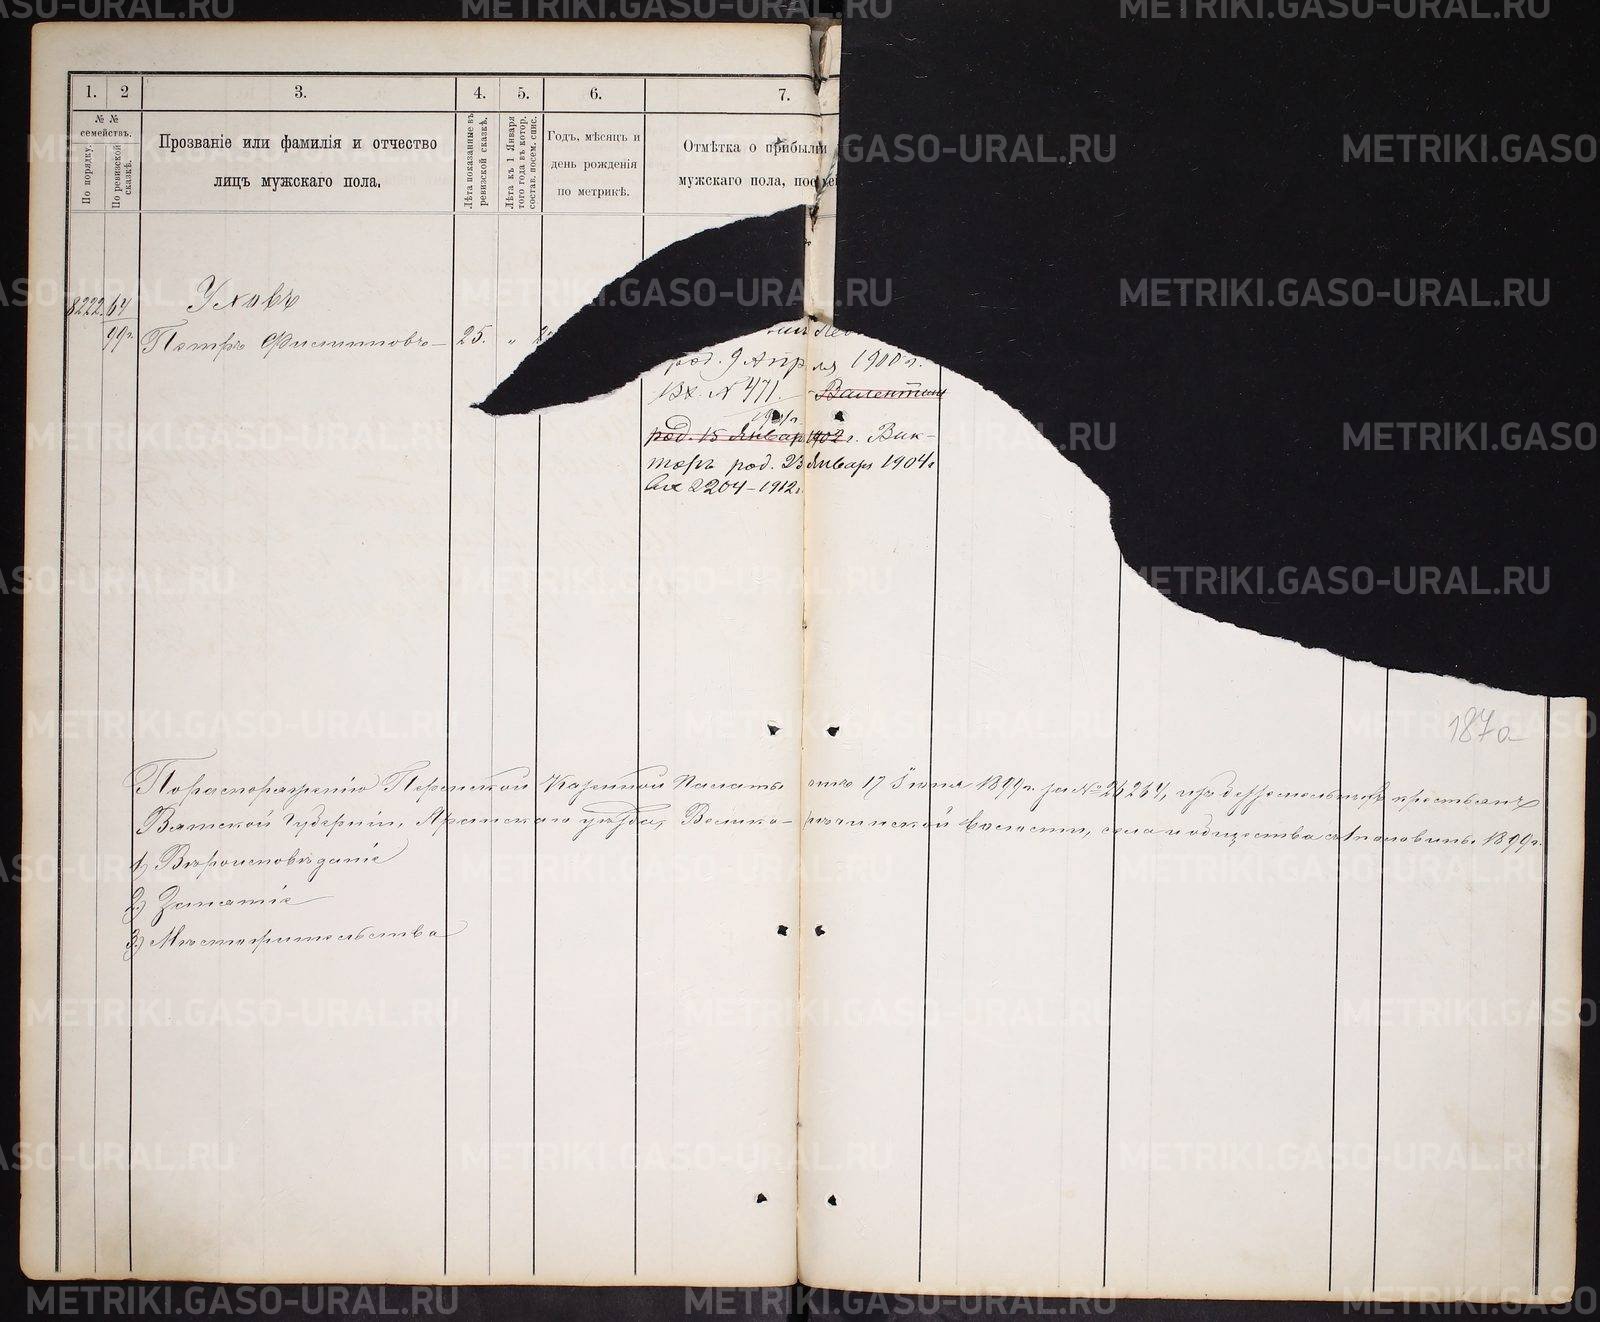 1. 2 3. 4. 5. 6. 7.
№ №
семействъ.
По порядку.
По ревизской
сказкѣ.
Прозваніе или фамилія и отчество
лицъ мужскаго пола.
Лѣта показанныя въ
ревизской сказкѣ.
Лѣта къ 1 Января
того года въ котор.
состав. посем. спис.
Годъ, мѣсяцъ и
день рожденія
по метрикѣ.
Отмѣтка о прибыли
мужскаго пола, посл
8222. 64 Уховъ
99г. Петръ Филипповъ 25. „
род. 9 Апрѣля 1900 г.
Вх. № 471. Валентинъ
род. 15 Январ 1902 г. Вик-
торъ род. 23 Январ 1904г
Вх 2204-1912г
187а
По распоряженію Пермской Казенной Палаты отъ 17 Іюня 1899г. за № 26264, изъ безземельныхъ крестьянъ
Вятской Губерніи, Яранскаго уѣзда, Велико-рѣчинской волости, села и общества съ половины 1899г.
1) Вѣроисповѣданіе
2) Занятіе
3) Мѣстожительства
METRIKI.GASO-URAL.RU